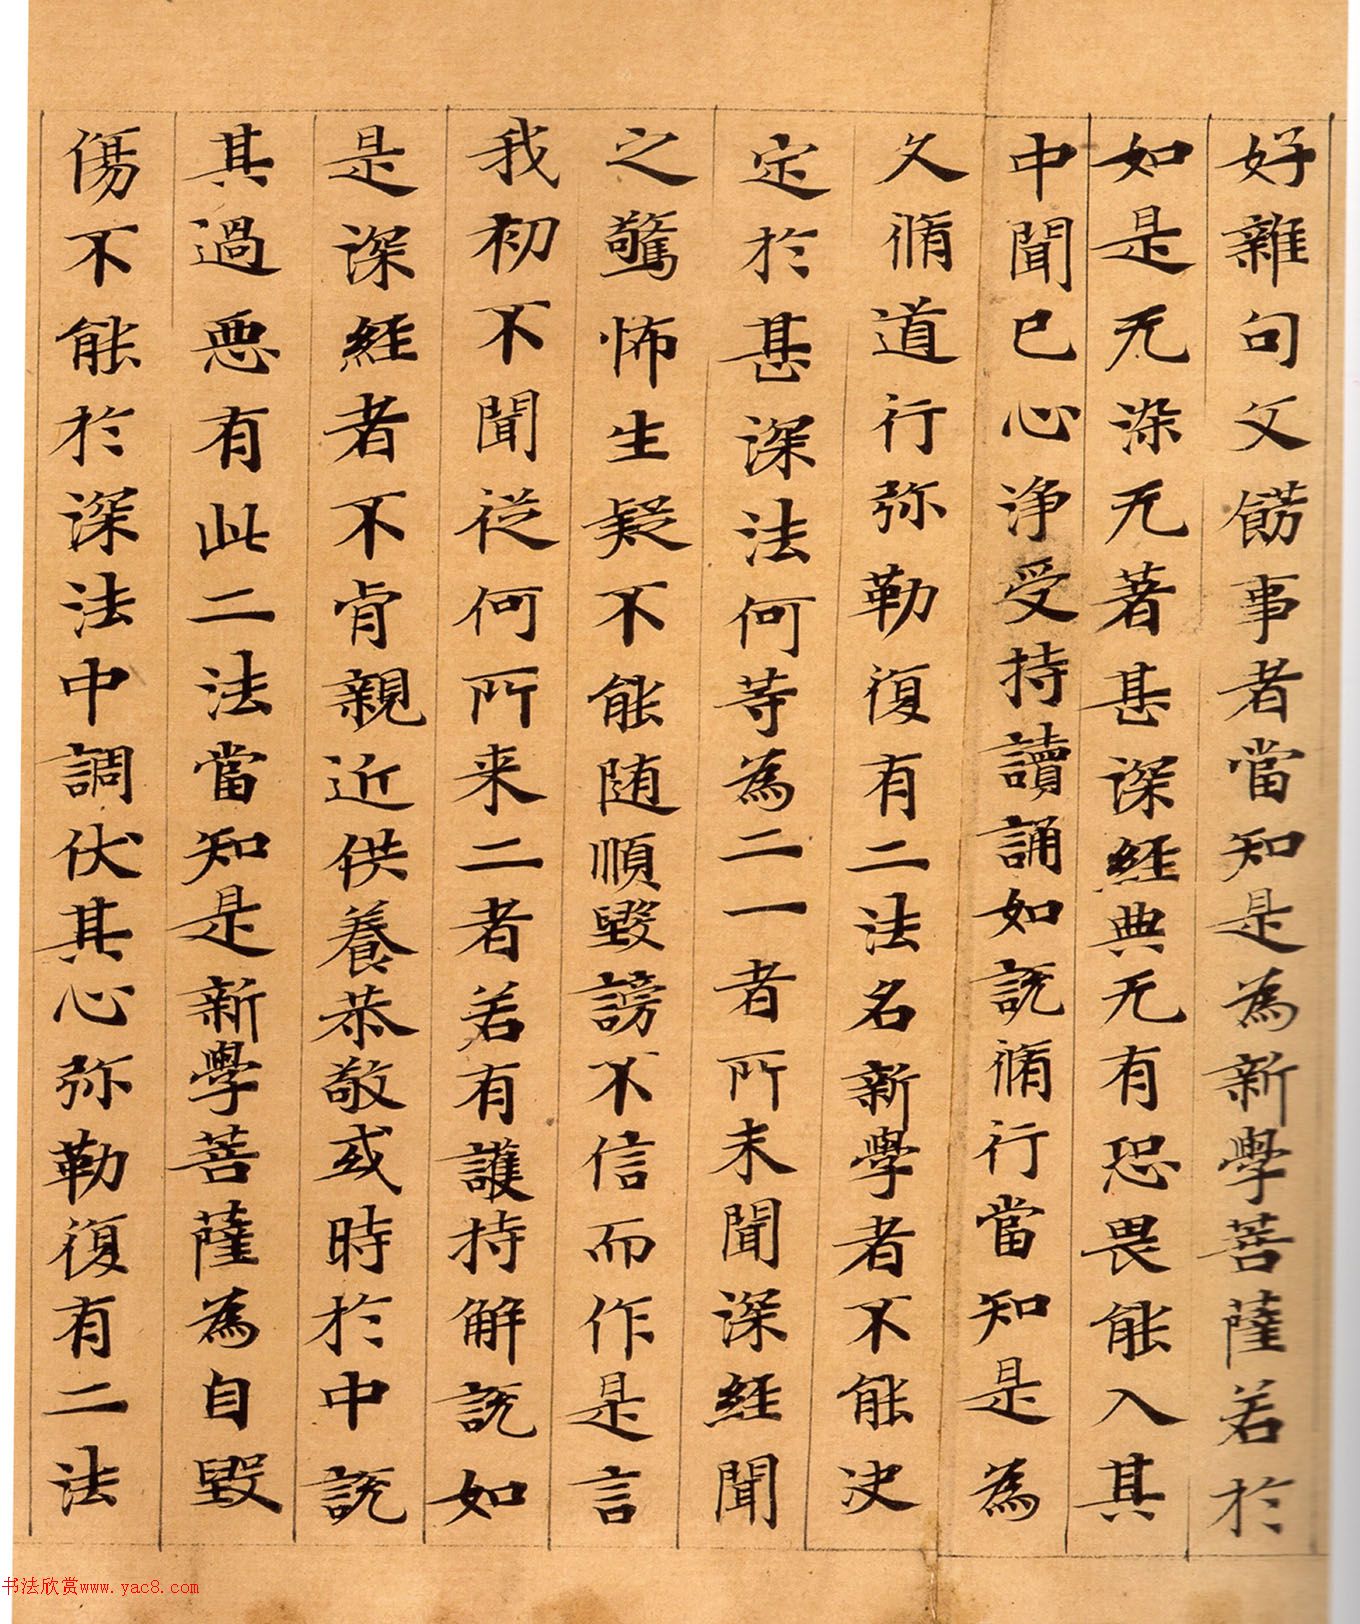 好雜句文餝事者當知是為新學菩薩若於
如是无染无著甚深經典无有恐畏能入其
中聞已心淨受持讀誦如說脩行當知是為
久脩道行弥勒復有二法名新學者不能決
定於甚深法何等為二一者所未聞深經聞
之驚怖生疑不能随順毀謗不信而作是言
我初不聞從何所来二者若有護持解說如
是深經者不肯親近供養恭敬或時於中說
其過惡有此二法當知是新學菩薩為自毀
傷不能於深法中調伏其心弥勒復有二法
书法欣赏www.yac8.com